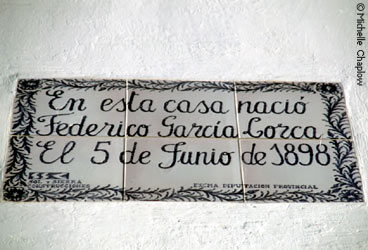 En esta casa nació
Federico García Lorca
El 5 de Junio de 1898
SOL Y SIERRA
CONSTRUCCIONES
EXCMA DIPUTACION PROVINCIAL
© Michelle Chaplow